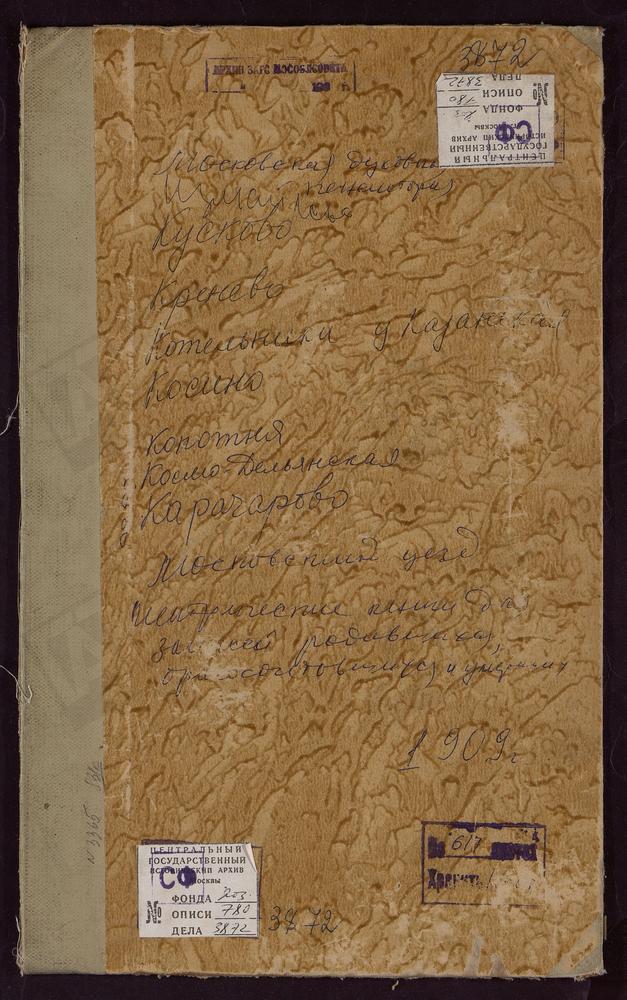 3872
АРХИВ ЗАГС МОСОБЛСОВЕТА
ЦЕНТРАЛЬНЫЙ
ГОСУДАРСТВЕННЫЙ
ИСТОРИЧЕСКИЙ АРХИВ
г. МОСКВЫ
СФ
ФОНДА 203
№ ОПИСИ 780
ДЕЛА 3872
Московская духовная
консистория
Кусково
Кренево
Котельники у Казанская
Косино
Копотня
Космо-Демьянская
Карачарово
Московский уезд
Метрические книги для
записей родившихся,
бракосочетовшихся и умерших
1909 г
№ 3365
617 листов
Хранить
ЦЕНТРАЛЬНЫЙ
ГОСУДАРСТВЕННЫЙ
ИСТОРИЧЕСКИЙ АРХИВ
г. Москвы
СФ
ФОНДА 203
№ ОПИСИ 780
ДЕЛА 3872
3872